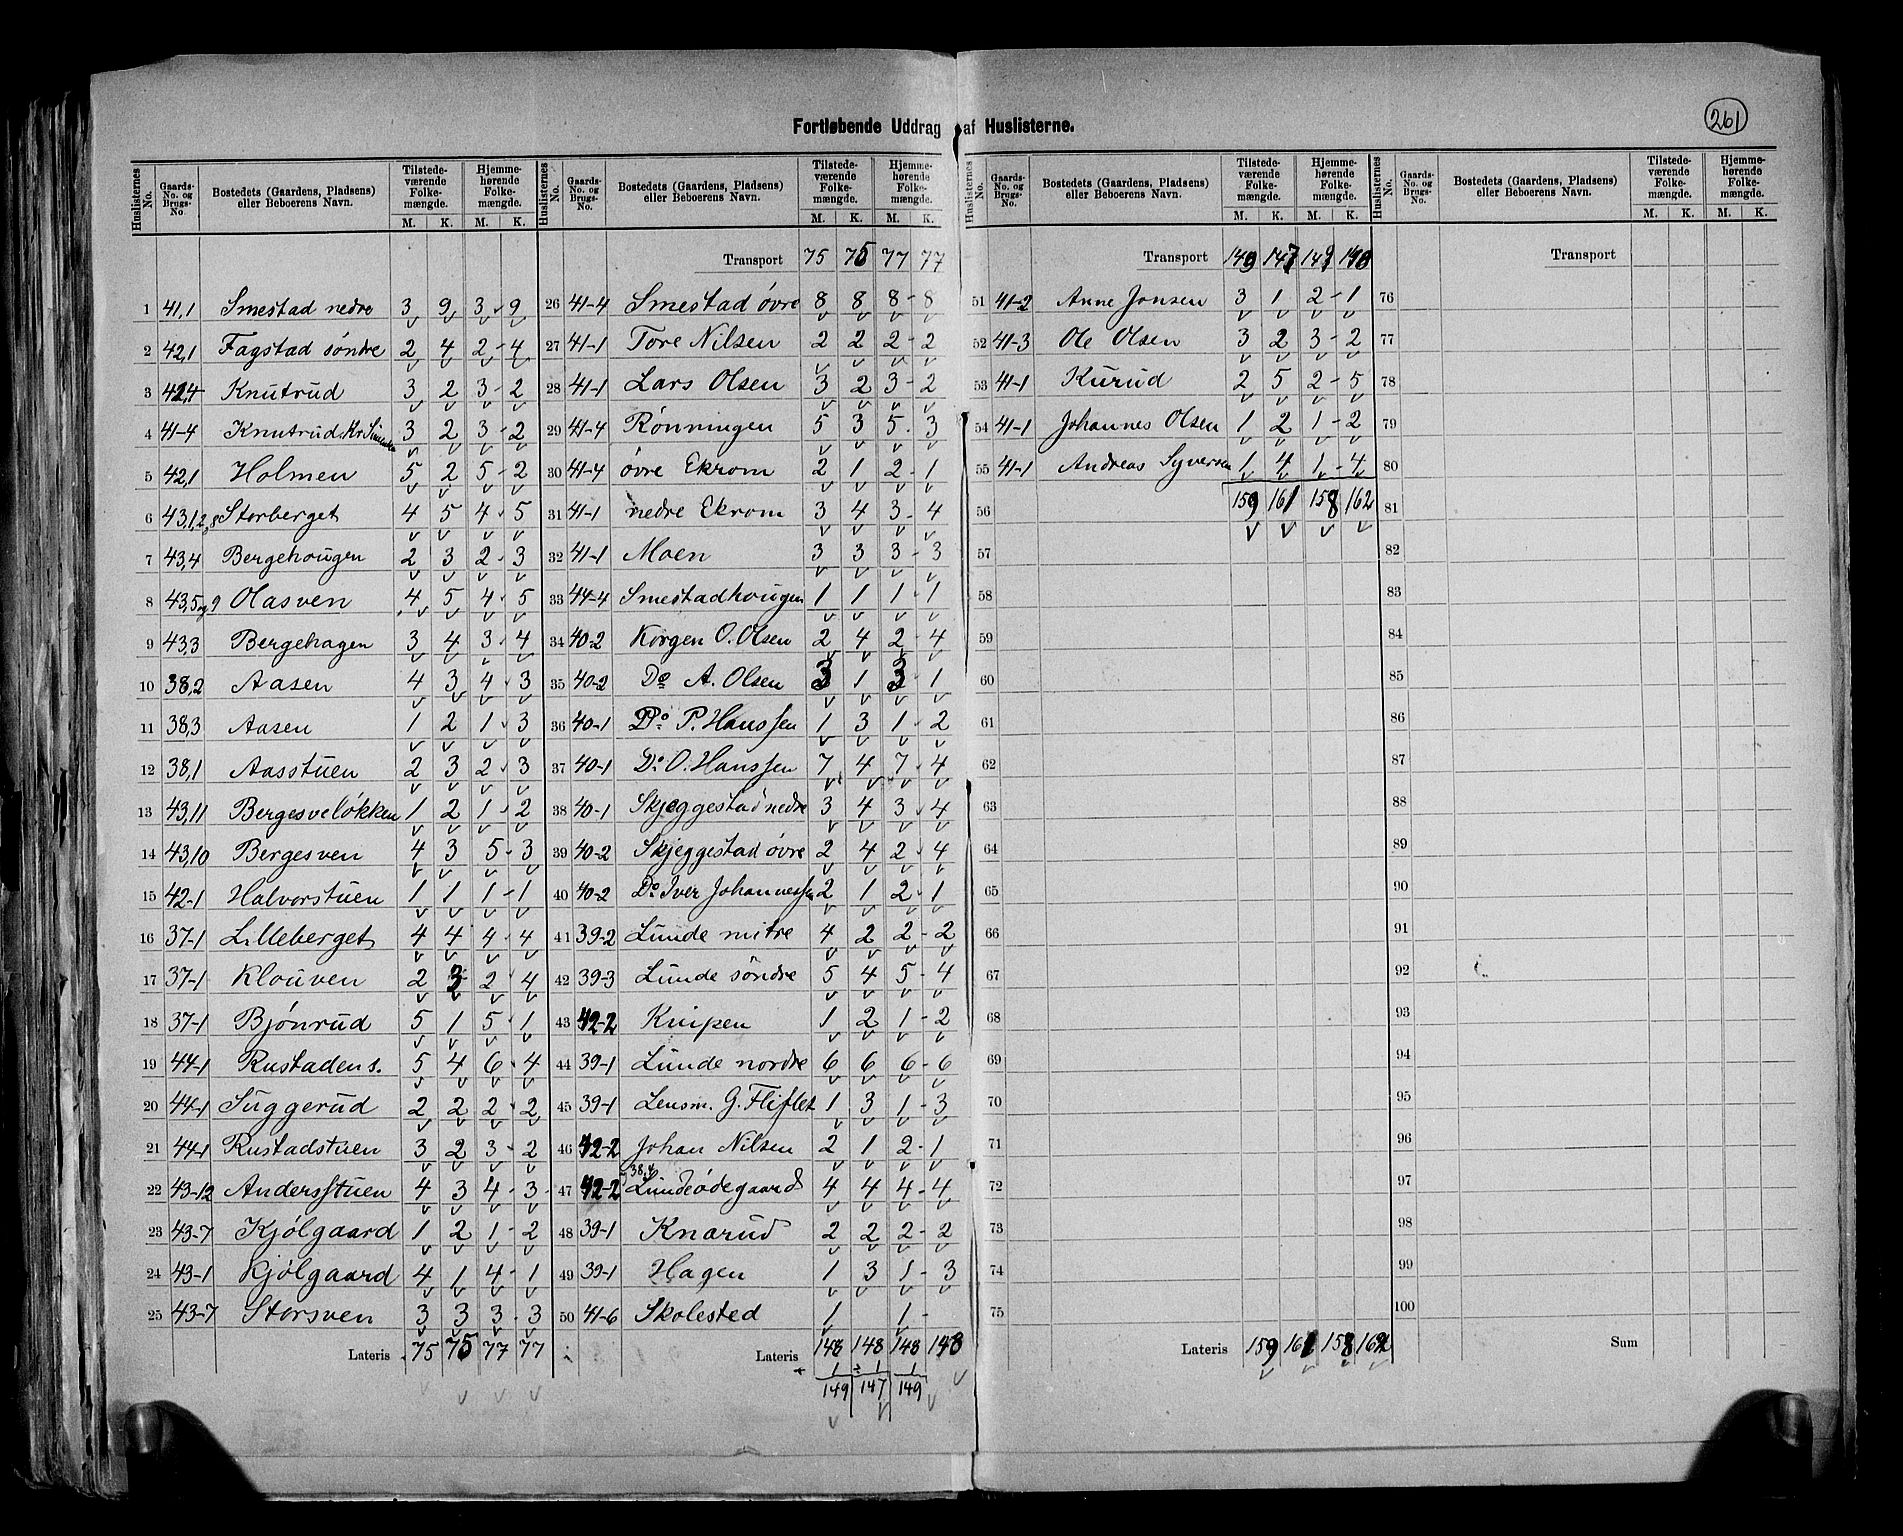 261
Fortløbende Uddrag af Huslisterne.
Huslisternes No. | Gaards-No. og Brugs-No. | Bostedets (Gaardens, Pladsens) eller Beboerens Navn. | Tilstede-værende Folke-mængde. M. K. | Hjemme-hørende Folke-mængde. M. K.
1 41,1 Smestad nedre 3 9 3 9
2 42,1 Fagstad søndre 2 4 2 4
3 42,4 Knutrud 3 2 3 2
4 41-4 Knutrud, Kr. 3 2 3 2
5 42,1 Holmen 5 2 5 2
6 43,1,2,8 Storberget 4 5 4 5
7 43,4 Bergehougen 2 3 2 3
8 43,5 og 9 Olasven 4 5 4 5
9 43,3 Bergehagen 3 4 3 4
10 38,2 Aasen 4 3 4 3
11 38,3 Aasen 1 2 1 3
12 38,1 Aasstuen 2 3 2 3
13 43,11 Bergesveløkken 1 2 1 2
14 43,10 Bergesven 4 3 5 3
15 42-1 Halvorstuen 1 1 1 1
16 37-1 Lilleberget 4 4 4 4
17 37-1 Klouven 2 3 2 4
18 37-1 Bjønrud 5 1 5 1
19 44-1 Rustaden s. 5 4 6 4
20 44-1 Suggerud 2 2 2 2
21 44-1 Rustadstuen 3 2 3 2
22 43-12 Andersstuen 4 3 4 3
23 43-7 Kjølgaard 1 2 1 2
24 43-1 Kjølgaard 4 1 4 1
25 43-7 Storsven 3 3 3 3
Lateris 75 75 77 77
Huslisternes No. | Gaards-No. og Brugs-No. | Bostedets (Gaardens, Pladsens) eller Beboerens Navn. | Tilstede-værende Folke-mængde. M. K. | Hjemme-hørende Folke-mængde. M. K.
Transport 75 75 77 77
26 41-4 Smestad øvre 8 8 8 8
27 41-1 Tore Nilsen 2 2 2 2
28 41-1 Lars Olsen 3 2 3 2
29 41-4 Rønningen 5 3 5 3
30 41-4 øvre Ekrom 2 1 2 1
31 41-1 nedre Ekrom 3 4 3 4
32 41-1 Moen 3 3 3 3
33 44-4 Smestadhougen 1 1 1 1
34 40-2 Korgen O. Olsen 2 4 2 4
35 40-2 Do A. Olsen 3 1 3 1
36 40-1 Do P. Hanssen 1 3 1 2
37 40-1 Do O. Hanssen 7 4 7 4
38 40-1 Skjeggestad nedre 3 4 3 4
39 40-2 Skjeggestad øvre 2 4 2 4
40 40-2 Do Iver Johannessen 2 1 2 1
41 39-2 Lunde mitre 4 2 2 2
42 39-3 Lunde søndre 5 4 5 4
43 42-2 Knipen 1 2 1 2
44 39-1 Lunde nordre 6 6 6 6
45 39-1 Lensm. G. Fliflet 1 3 1 3
46 42-2 Johan Nilsen 2 1 2 1
47 42-2 38,4 Lundeødegaard 4 4 4 4
48 39-1 Knarud 2 2 2 2
49 39-1 Hagen 1 3 1 3
50 41-6 Skolested 1 1
Lateris 148 148 148 148
+ 1 ÷ 1 1
149 147 149
Huslisternes No. | Gaards-No. og Brugs-No. | Bostedets (Gaardens, Pladsens) eller Beboerens Navn. | Tilstede-værende Folke-mængde. M. K. | Hjemme-hørende Folke-mængde. M. K.
Transport 149 147 149 148
51 41-2 Anne Jonsen 3 1 2 1
52 41-3 Ole Olsen 3 2 3 2
53 41-1 Kurud 2 5 2 5
54 41-1 Johannes Olsen 1 2 1 2
55 41-1 Andreas Syversen 1 4 1 4
56 159 161 158 162
57
58
59
60
61
62
63
64
65
66
67
68
69
70
71
72
73
74
75
Lateris 159 161 158 162
Huslisternes No. | Gaards-No. og Brugs-No. | Bostedets (Gaardens, Pladsens) eller Beboerens Navn. | Tilstede-værende Folke-mængde. M. K. | Hjemme-hørende Folke-mængde. M. K.
Transport
76
77
78
79
80
81
82
83
84
85
86
87
88
89
90
91
92
93
94
95
96
97
98
99
100
Sum